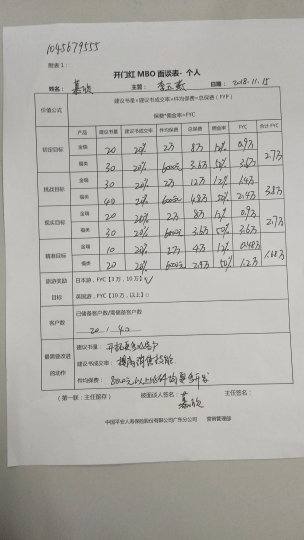 1045679555
附表1：
开门红 MBO 面谈表- 个人
姓名： 主管： 日期： 2018.11.15
价值公式 建议书量×建议书成交率×件均保费=总保费（FYP）
保费*佣金率=FYC
产品 建议书量 建议书成交率 件均保费 总保费 佣金率 FYC 合计FYC
金瑞 20 20% 2万 8万 12% 0.9万
初定目标 2.7万
福类 30 20% 6000元 3.6万 50%
金瑞 30 20% 2万 12万 12% 1.4万
挑战目标 3.8万
福类 40 20% 6000元 4.8万 50% 2.4万
金瑞 20 20% 2万 8万 12% 0.9万
现实目标 2.7万
福类 30 20% 6000元 3.6万 50% 3.6万
金瑞 10 20% 2万 4万 12% 0.48万
精准目标 1.68万
福类 20 20% 6000元 2.4万 50% 1.2万
旅游奖励 日本游，FYC【3万，10万） √
目标 英国游，FYC【10万，以上）
客户数 已储备客户数/需储备客户数
20 / 40
建议书量： 开拓更多的客户
最需做改进 建议书成交率： 提高销售技能
的动作 件均保费： 8000元以上的件均
（第一联：主任留存） 被面谈人签名： 主任签名：
中国平安人寿保险股份有限公司广东分公司 营销管理部